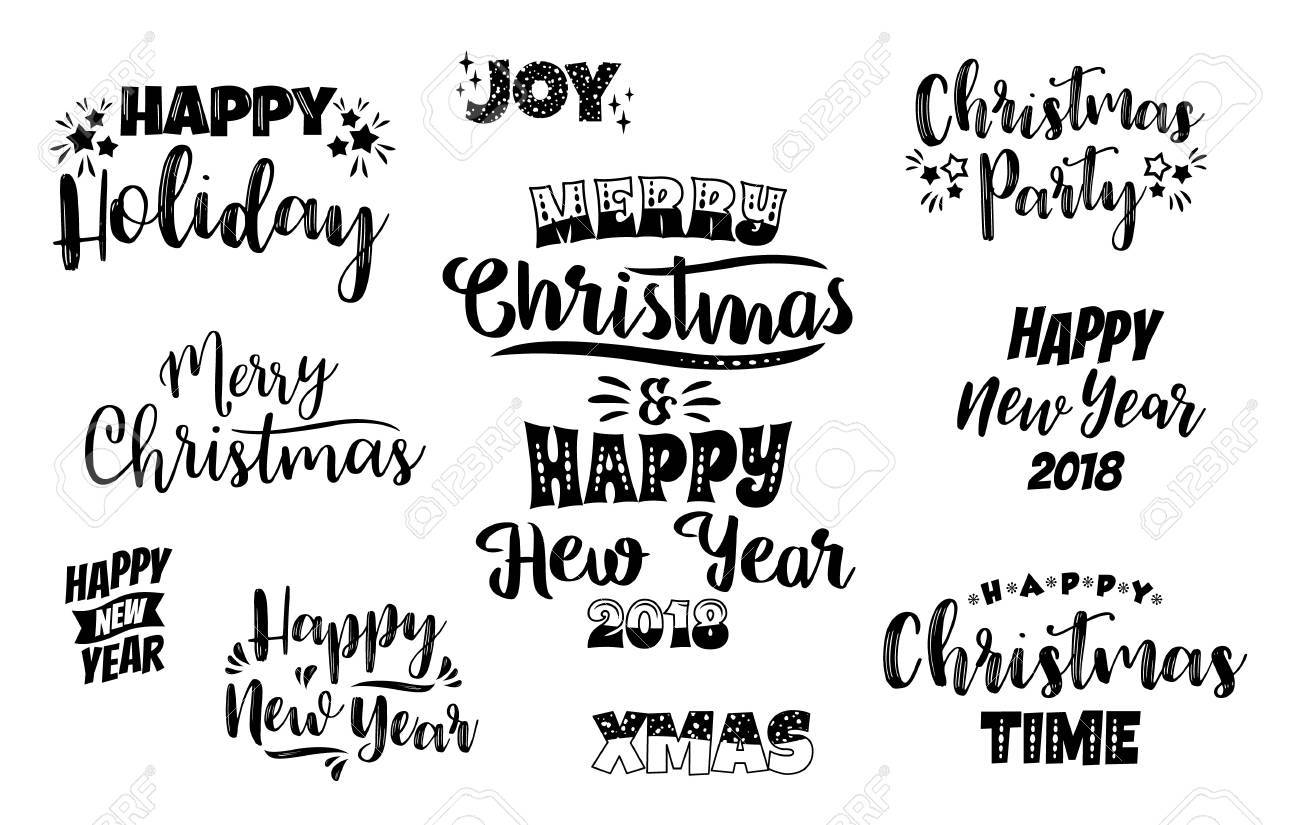 HAPPY
Holiday
JOY
Christmas
Party
MERRY
Christmas
&
HAPPY
Hew Year
2018
Merry
Christmas
HAPPY
New Year
2018
HAPPY
NEW
YEAR
Happy
New Year
XMAS
H*A*P*P*Y*
Christmas
TIME
123RF